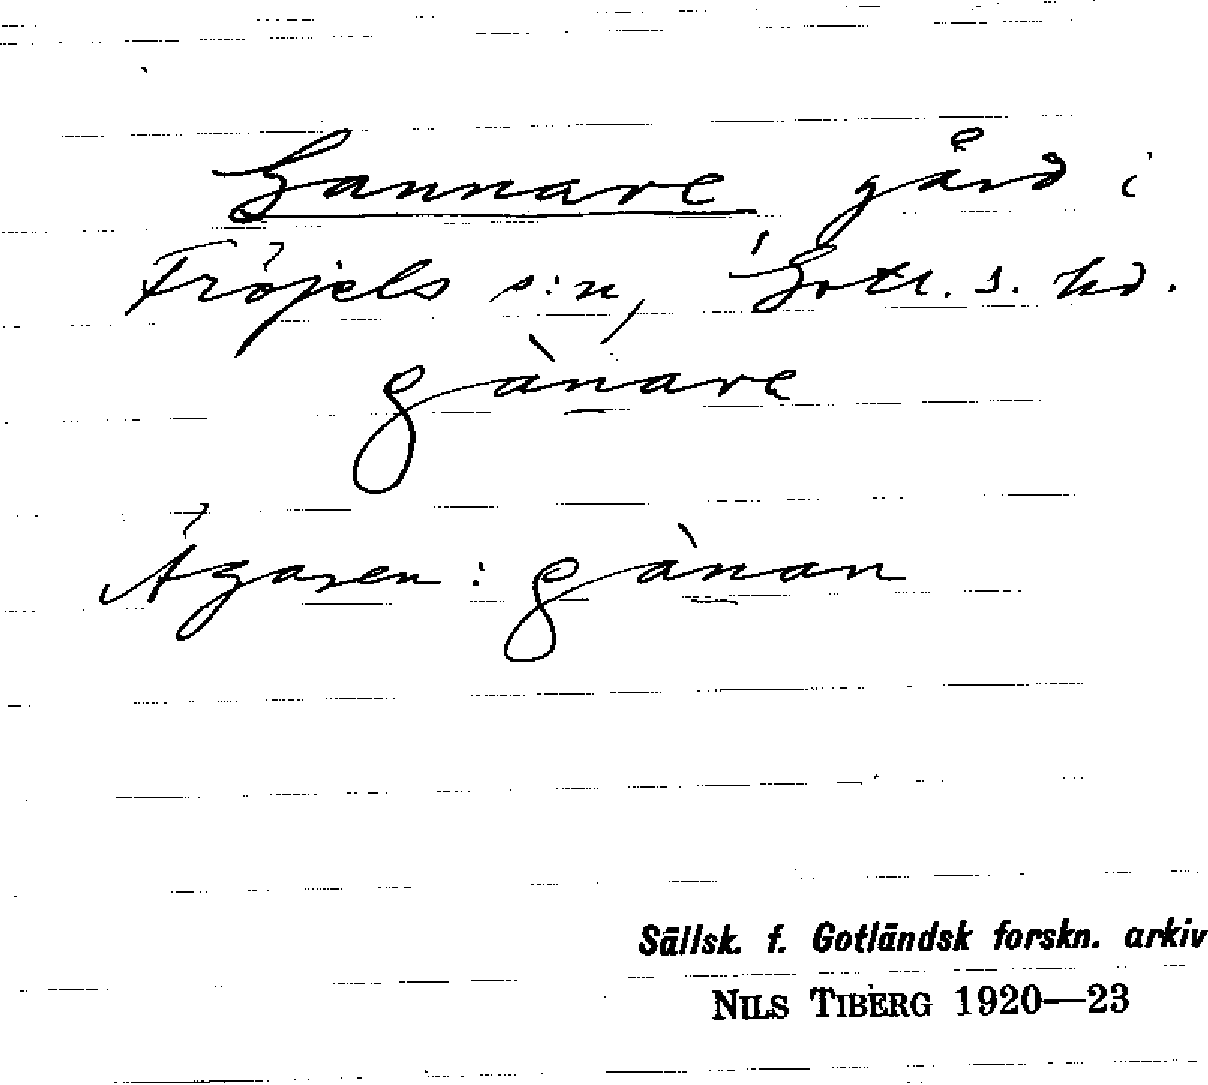 Gannare gård i
Fröjels s:n, Gotl. s. hd.
gànare
Ägaren: gànan
Sällsk. f. Gotländsk forskn. arkiv
NILS TIBERG 1920—23